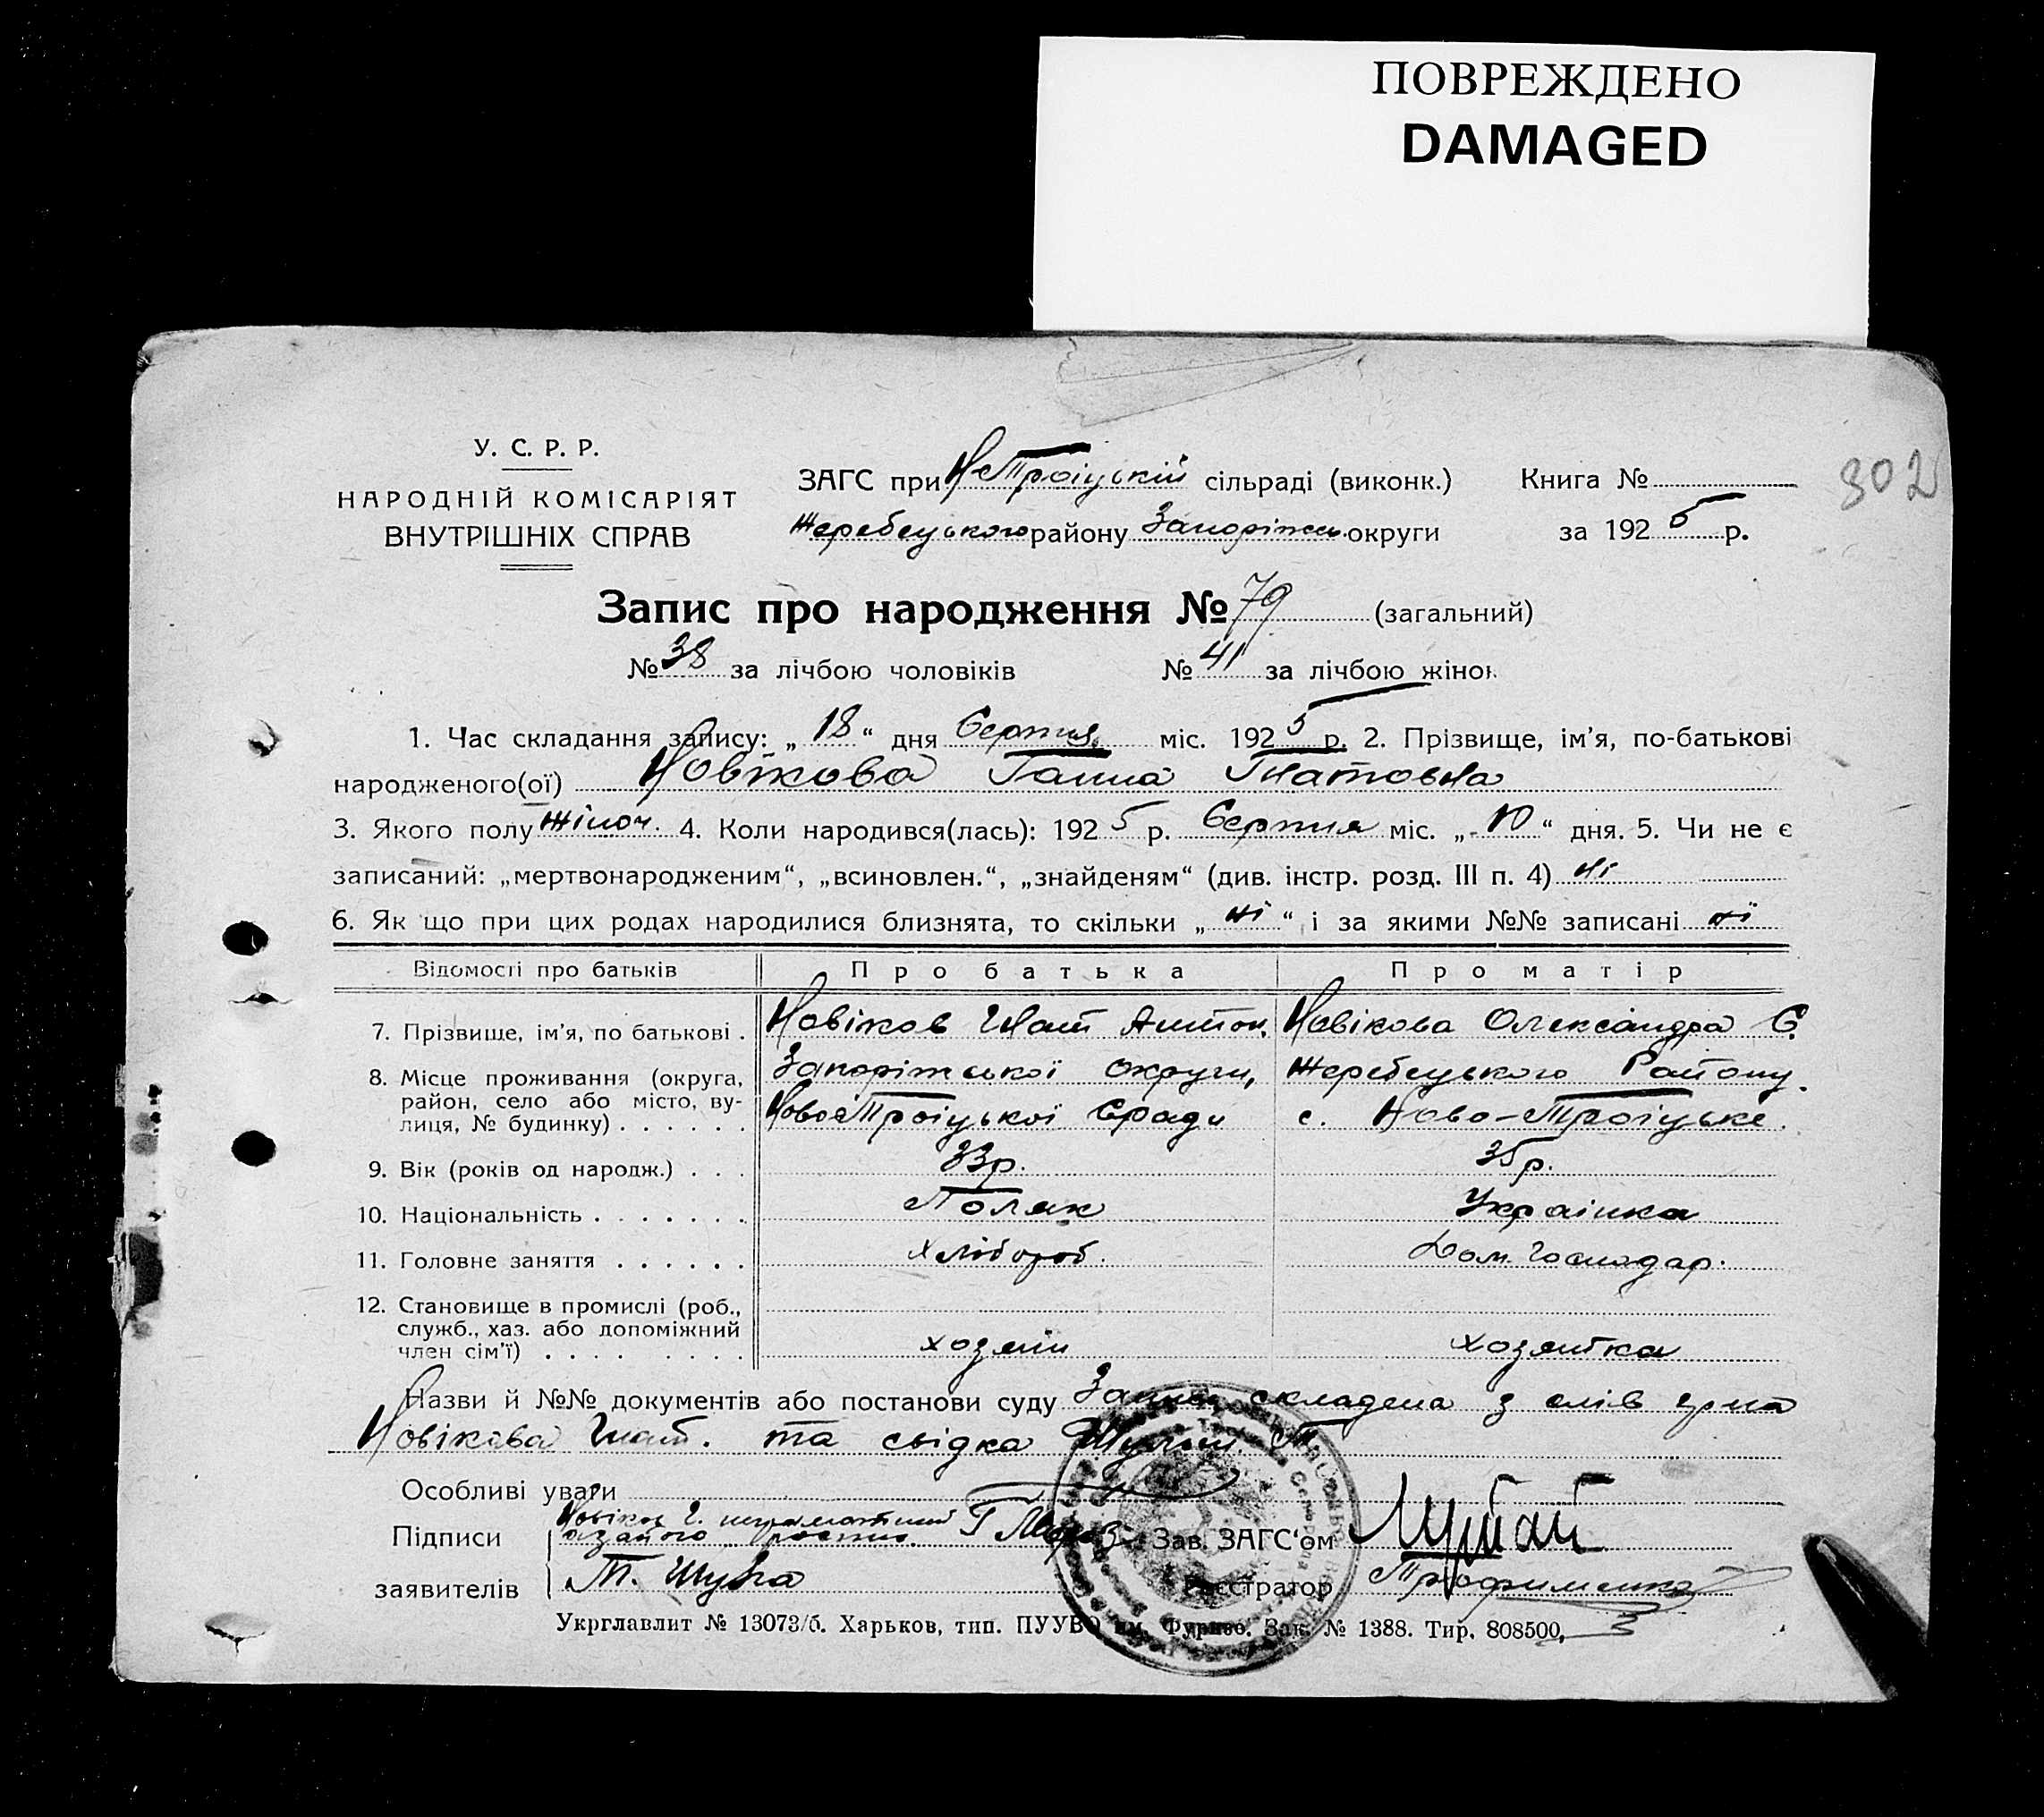 ПОВРЕЖДЕНО
DAMAGED
302
У. С. Р. Р.
НАРОДНІЙ КОМІСАРІЯТ
ВНУТРІШНІХ СПРАВ
ЗАГС при Н-Троіцькій сільраді (виконк.) Книга №
Жеребецького району Запоріжсь. округи за 1925 р.
Запис про народження № 79 (загальний)
№ 38 за лічбою чоловіків № 41 за лічбою жінок
1. Час складання запису: „ 18 “ дня Серпня міс. 1925 р. 2. Прізвище, ім’я, по-батькові
народженого(ої) Новікова Ганна Гнатовна
3. Якого полу жіноч. 4. Коли народився(лась): 1925 р. Серпня міс. „ 10 “ дня. 5. Чи не є
записаний: „мертвонародженим“, „всиновлен.“, „знайденям“ (див. інстр. розд. III п. 4) ні
6. Як що при цих родах народилися близнята, то скільки „ ні “ і за якими №№ записані ні
Відомості про батьків Про батька Про матір
7. Прізвище, ім’я, по батькові . Новіков Гнат Антон. Новікова Олександра С.
8. Місце проживання (округа, район, село або місто, ву-лиця, № будинку) . . . . . . Запоріжської округи, Жеребецького Району.
Ново-Троіцької Сради с. Ново-Троіцьке.
9. Вік (років од народж.) . . . 33р. 35р.
10. Національність . . . . . . . Поляк Украінка
11. Головне заняття . . . . . . Хлібороб. Дом. господар.
12. Становище в промислі (роб., служб., хаз. або допоміжний член сім’ї) . . . . . . . . хозяін хозяйка
Назви й №№ документів або постанови суду Запись складена з слів гр-на
Новікова Гнат. та свідка Шульги Т.
Особливі уваги
Підписи Новіков Г. неграмотний
за його роспис. Зав. ЗАГС‘ом
заявителів Т. Шульга Реєстратор Трофименко
Укрглавлит № 13073/б. Харьков, тип. ПУУВО им. Фрунзе. Зак. № 1388. Тир. 808500.